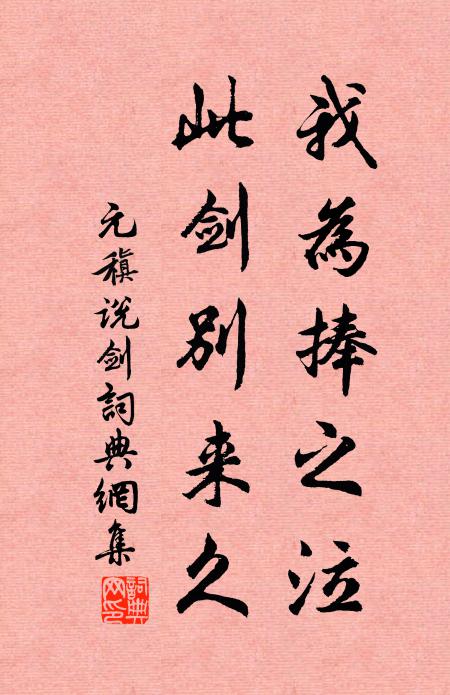 我為捧之泣
此剑别来久
元稹说剑詞典網集
詞典网印